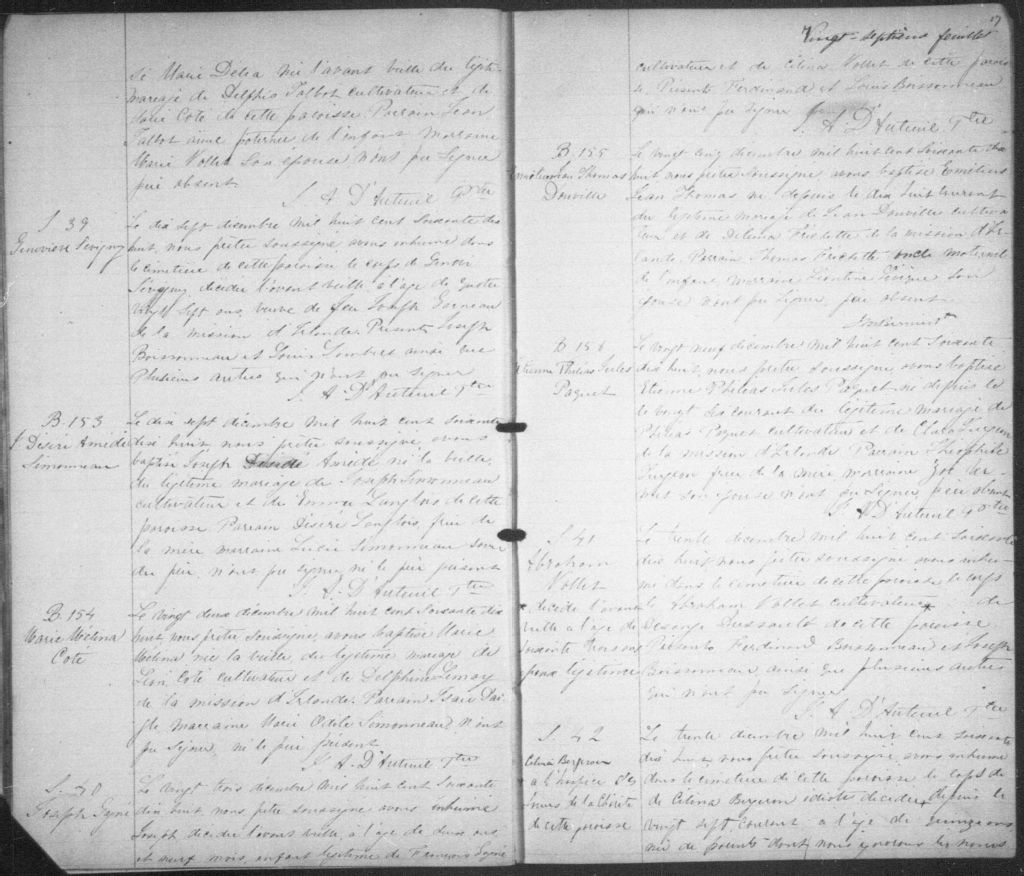 sé Marie Delia née l'avant veille du légiti-
mariage de Delphis Talbot cultivateur et de
Marie Coté de cette paroisse. Parrain Jean
Talbot aieul paternel de l'enfant marraine
Marie Vollet son épouse n'ont pu signer
père absent.
J. A. D'Auteuil Ptre
S. 39
Genevieve Sevigny
Le dix sept décembre mil huit cent soixante dix
huit, nous prêtre soussigné avons inhumé dans
le cimetière de cette paroisse le corps de
Sévigny décédée l'avant veille à l'âge de quatre
vingt sept ans, veuve de feu Joseph
de la mission d'Irlande. Présents Joseph
Boissonneau et Louis ainsi que
plusieurs autres qui n'ont pu signer
J. A. D'Auteuil Ptre
B. 153
J Desiré Amédé
Simonneau
Le dix sept décembre mil huit cent soixante
dix huit nous prêtre soussigné avons
baptisé Joseph Désiré Amédé né la veille
du légitime mariage de Joseph Simonneau
cultivateur et de Emma Langlois de cette
paroisse. Parrain Désiré Langlois, frère de
la mère marraine Lucie Simonneau soeur
du père, n'ont pu signer ni le père présent
J. A. D'Auteuil Ptre
B. 154
Marie Mélina
Coté
Le vingt deux décembre mil huit cent soixante dix
huit nous prêtre soussigné, avons baptisé Marie
Mélina née la veille du légitime mariage de
Léon Coté cultivateur et de Delphine Lemay
de la mission d'Irlande. Parrain Isaie
marraine Marie Odile Simonneau n'ont
pu signer ni le père présent
J. A. D'Auteuil Ptre
S. 40
Joseph
Le vingt trois décembre mil huit cent soixante
dix huit nous prêtre soussigné avons inhumé
Joseph décédé l'avant veille à l'âge de deux ans
et neuf mois, enfant légitime de François
Vingt-septième feuillet
cultivateur et de Célina Vollet de cette parois-
se. Présents Ferdinand et Louis Boissonneau
qui n'ont pu signer
J. A. D'Auteuil Ptre
B. 155
Jean Thomas
Douville
Le vingt cinq décembre mil huit cent soixante dix
huit nous prêtre soussigné avons baptisé
Jean Thomas né depuis le dix huit courant
du légitime mariage de Jean Douville cultiva-
teur et de Delima Fréchette de la mission d'Ir-
lande. Parrain Thomas Fréchette oncle maternel
de l'enfant marraine son
épouse n'ont pu signer, père absent.
B 156
Etienne Philéas Jules
Paquet
Le vingt neuf décembre mil huit cent soixante
dix huit, nous prêtre soussigné, avons baptisé
Etienne Philéas Jules Paquet né depuis le
le vingt six courant du légitime mariage de
Philéas Paquet cultivateur et de Clara Turgeon
de la mission d'Irlande. Parrain Théophile
Turgeon frère de la mère marraine Zoé
son épouse n'ont pu signer, père absent
J. A D'Auteuil Ptre
S. 41
Abraham
Vollet
* décédé l'avant
veille à l'âge de
soixante trois ans
Le trente décembre mil huit cent soixante
dix huit nous prêtre soussigné avons inhu-
mé dans le cimetière de cette paroisse le corps
de Abraham Vollet cultivateur * de
Desanges Dussault de cette paroisse.
Présents Ferdinand Boissonneau et Joseph
Boissonneau ainsi que plusieurs autres
qui n'ont pu signer
J. A. D'Auteuil Ptre
S. 42
Celina Bergeron
* à l'hospice des
Soeurs de la Charité
de cette paroisse
Le trente décembre mil huit cent soixante
dix huit, nous prêtre soussigné, avons inhumé
dans le cimetière de cette paroisse le corps de
de Célina Bergeron idiote décédée * depuis le
vingt sept courant à l'âge de quinze ans
née de parents dont nous ignorons les noms